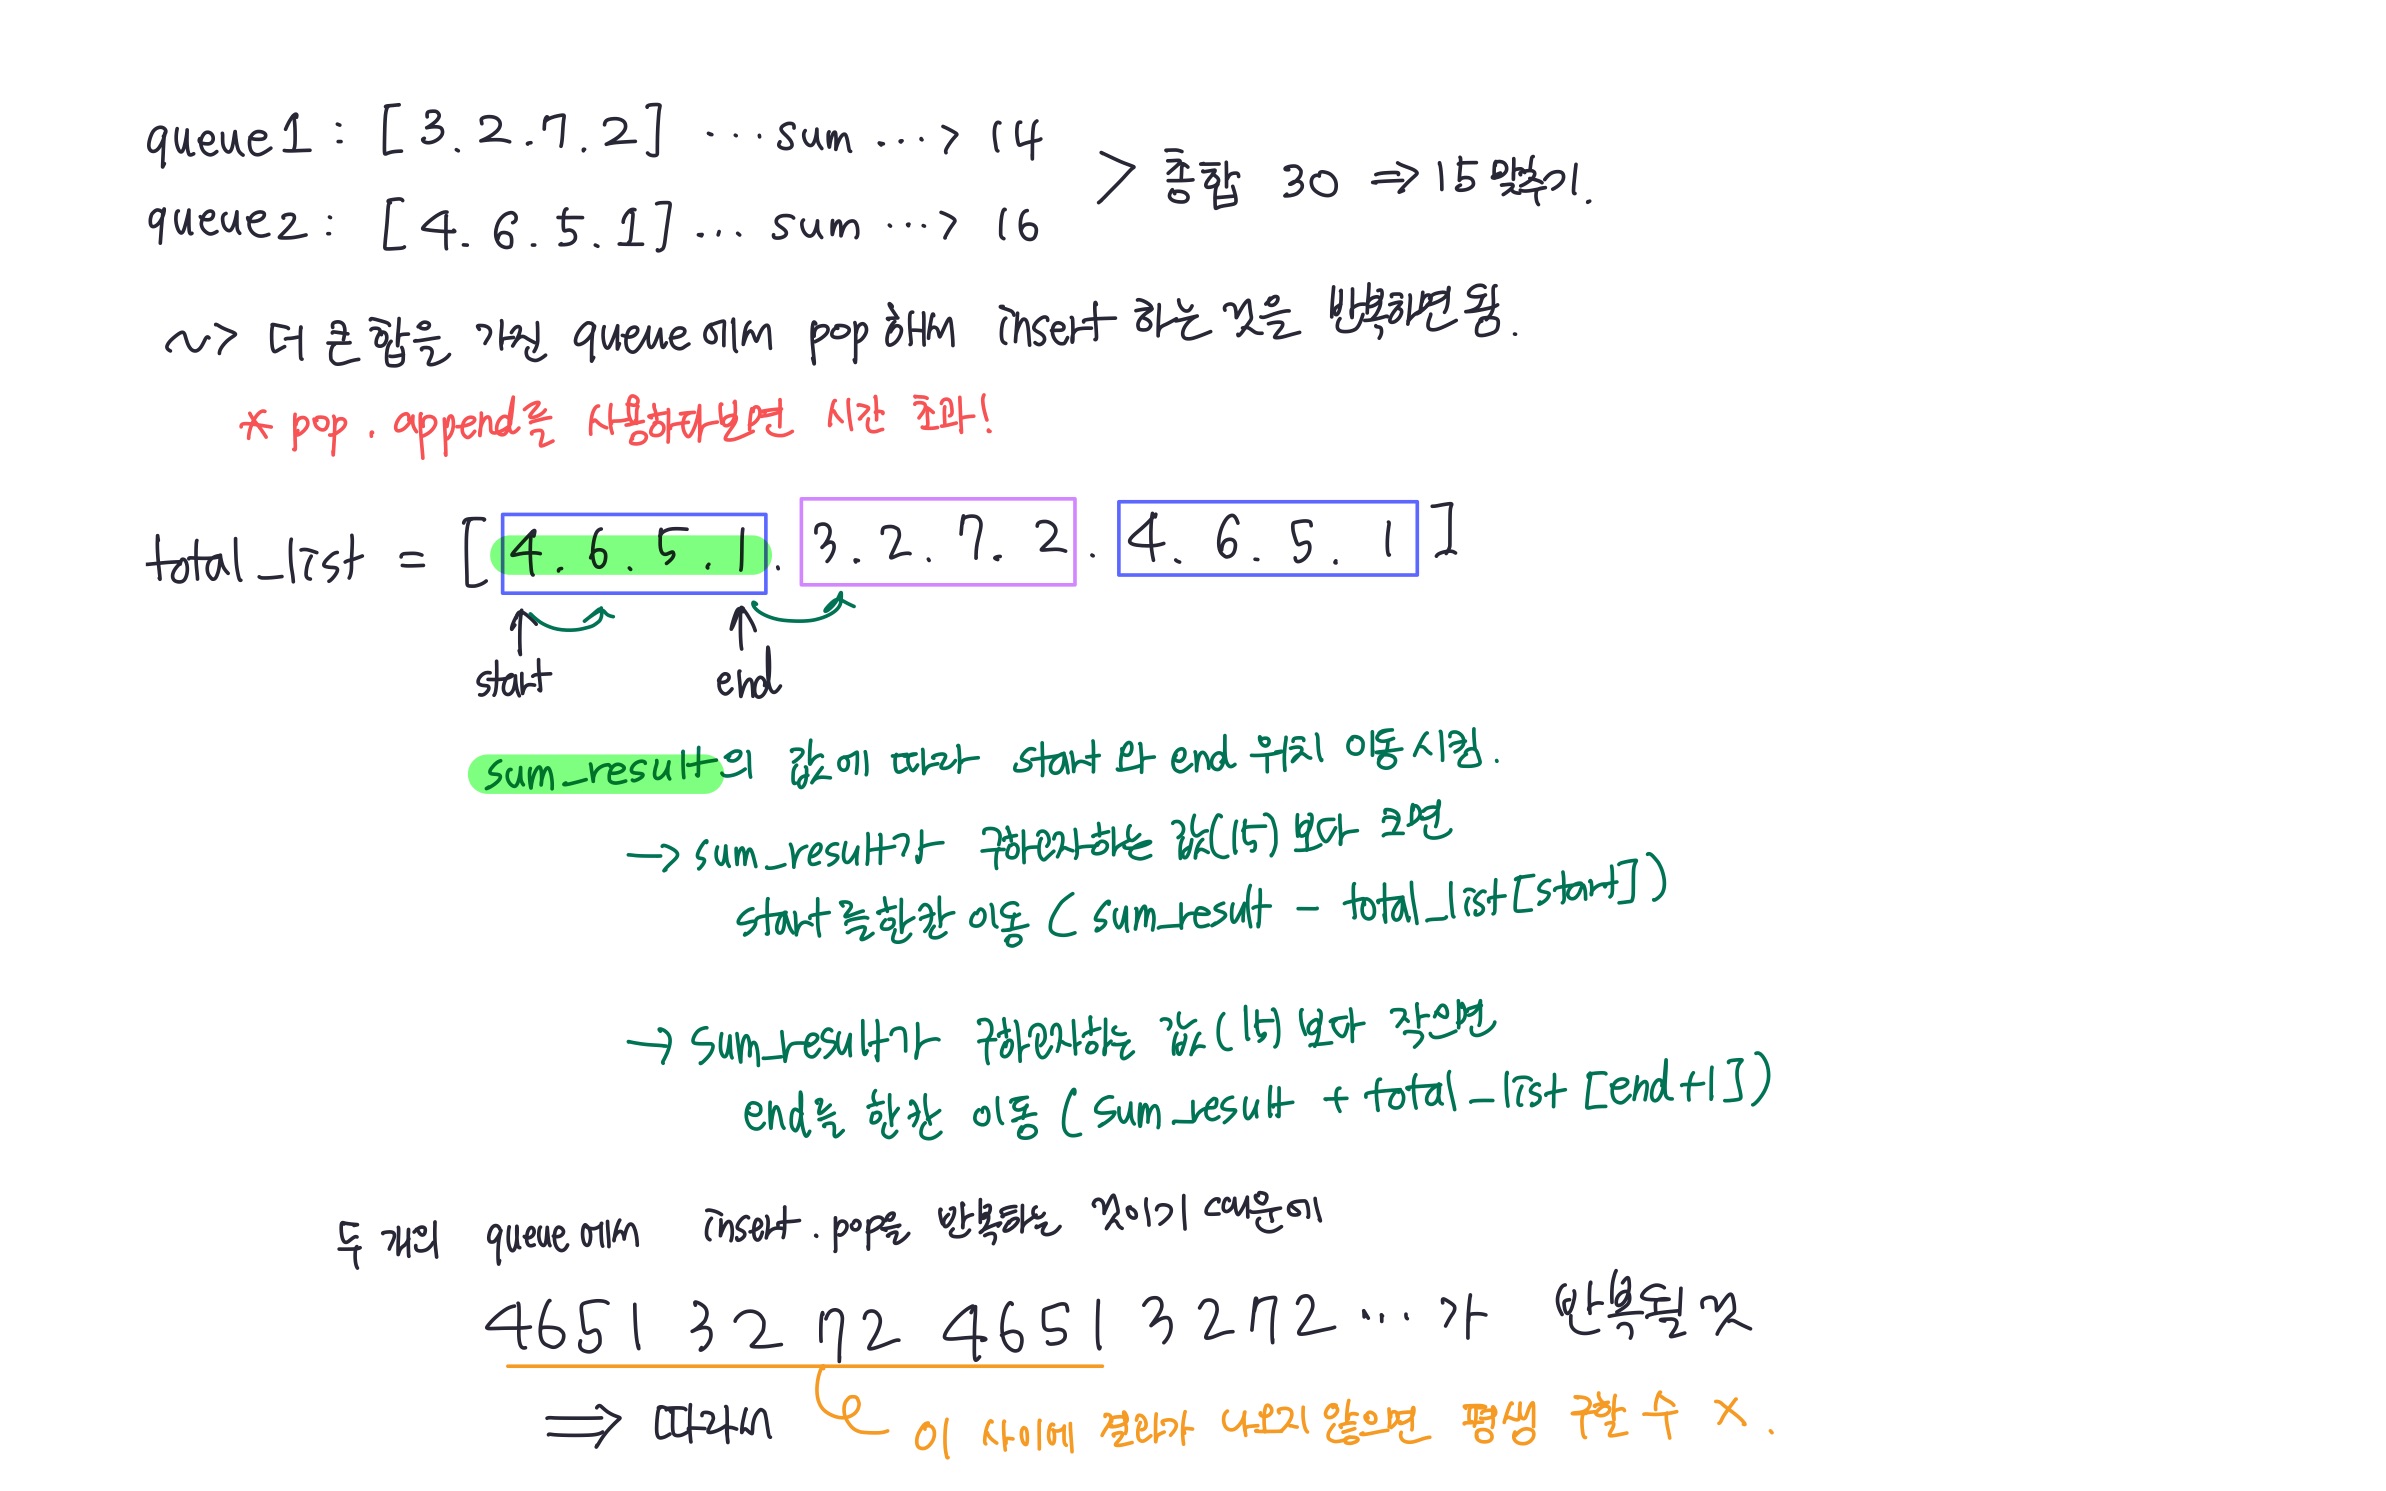 queue1 : [3. 2. 7. 2] ... sum ...> 14
queue2 : [4. 6. 5. 1] ... sum ...> 16
> 총합 30 ⇒ 15 맞추기.
~> 더 큰 합을 가진 queue에서 pop 해서 insert 하는 것을 반복하면 됨.
* pop. append를 사용하게 되면 시간 초과!
total_list = [4. 6. 5. 1. 3. 2. 7. 2. 4. 6. 5. 1]
start end
sum_result의 값에 따라 start 와 end 위치 이동시킴.
→ sum_result가 구해야하는 값(15)보다 크면
start를 한 칸 이동 (sum_result - total_list[start])
→ sum_result가 구해야하는 값(15)보다 작으면
end를 한 칸 이동 (sum_result + total_list[end+1])
두 개의 queue에서 insert. pop을 반복하는 것이기 때문에
4651 3272 4651 3272 ... 가 반복될 것
⇒ 따라서 이 사이에 결과가 나오지 않으면 평생 구할 수 X.